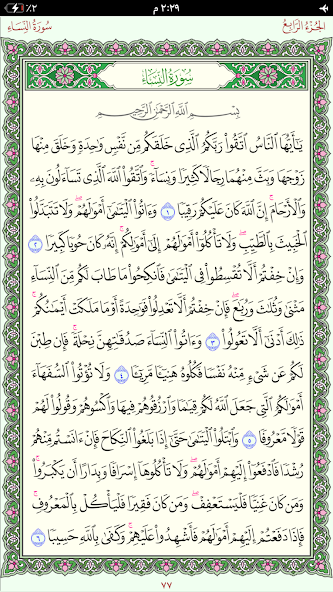 ٪٢ ٢:٢٩ م
سُورَةُ النِّسَاءِ الجُزْءُ الرَّابِعُ
سُورَةُ النِّسَاءِ
بِسْمِ اللَّهِ الرَّحْمَٰنِ الرَّحِيمِ
يَٰٓأَيُّهَا ٱلنَّاسُ ٱتَّقُوا۟ رَبَّكُمُ ٱلَّذِى خَلَقَكُم مِّن نَّفْسٍ وَٰحِدَةٍ وَخَلَقَ مِنْهَا
زَوْجَهَا وَبَثَّ مِنْهُمَا رِجَالًا كَثِيرًا وَنِسَآءً ۚ وَٱتَّقُوا۟ ٱللَّهَ ٱلَّذِى تَسَآءَلُونَ بِهِۦ
وَٱلْأَرْحَامَ ۚ إِنَّ ٱللَّهَ كَانَ عَلَيْكُمْ رَقِيبًا ١ وَءَاتُوا۟ ٱلْيَتَٰمَىٰٓ أَمْوَٰلَهُمْ ۖ وَلَا تَتَبَدَّلُوا۟
ٱلْخَبِيثَ بِٱلطَّيِّبِ ۖ وَلَا تَأْكُلُوٓا۟ أَمْوَٰلَهُمْ إِلَىٰٓ أَمْوَٰلِكُمْ ۚ إِنَّهُۥ كَانَ حُوبًا كَبِيرًا ٢
وَإِنْ خِفْتُمْ أَلَّا تُقْسِطُوا۟ فِى ٱلْيَتَٰمَىٰ فَٱنكِحُوا۟ مَا طَابَ لَكُم مِّنَ ٱلنِّسَآءِ
مَثْنَىٰ وَثُلَٰثَ وَرُبَٰعَ ۖ فَإِنْ خِفْتُمْ أَلَّا تَعْدِلُوا۟ فَوَٰحِدَةً أَوْ مَا مَلَكَتْ أَيْمَٰنُكُمْ ۚ
ذَٰلِكَ أَدْنَىٰٓ أَلَّا تَعُولُوا۟ ٣ وَءَاتُوا۟ ٱلنِّسَآءَ صَدُقَٰتِهِنَّ نِحْلَةً ۚ فَإِن طِبْنَ
لَكُمْ عَن شَىْءٍ مِّنْهُ نَفْسًا فَكُلُوهُ هَنِيٓـًٔا مَّرِيٓـًٔا ٤ وَلَا تُؤْتُوا۟ ٱلسُّفَهَآءَ
أَمْوَٰلَكُمُ ٱلَّتِى جَعَلَ ٱللَّهُ لَكُمْ قِيَٰمًا وَٱرْزُقُوهُمْ فِيهَا وَٱكْسُوهُمْ وَقُولُوا۟ لَهُمْ
قَوْلًا مَّعْرُوفًا ٥ وَٱبْتَلُوا۟ ٱلْيَتَٰمَىٰ حَتَّىٰٓ إِذَا بَلَغُوا۟ ٱلنِّكَاحَ فَإِنْ ءَانَسْتُم مِّنْهُمْ
رُشْدًا فَٱدْفَعُوٓا۟ إِلَيْهِمْ أَمْوَٰلَهُمْ ۖ وَلَا تَأْكُلُوهَآ إِسْرَافًا وَبِدَارًا أَن يَكْبَرُوا۟ ۚ
وَمَن كَانَ غَنِيًّا فَلْيَسْتَعْفِفْ ۖ وَمَن كَانَ فَقِيرًا فَلْيَأْكُلْ بِٱلْمَعْرُوفِ ۚ
فَإِذَا دَفَعْتُمْ إِلَيْهِمْ أَمْوَٰلَهُمْ فَأَشْهِدُوا۟ عَلَيْهِمْ ۚ وَكَفَىٰ بِٱللَّهِ حَسِيبًا ٦
٧٧